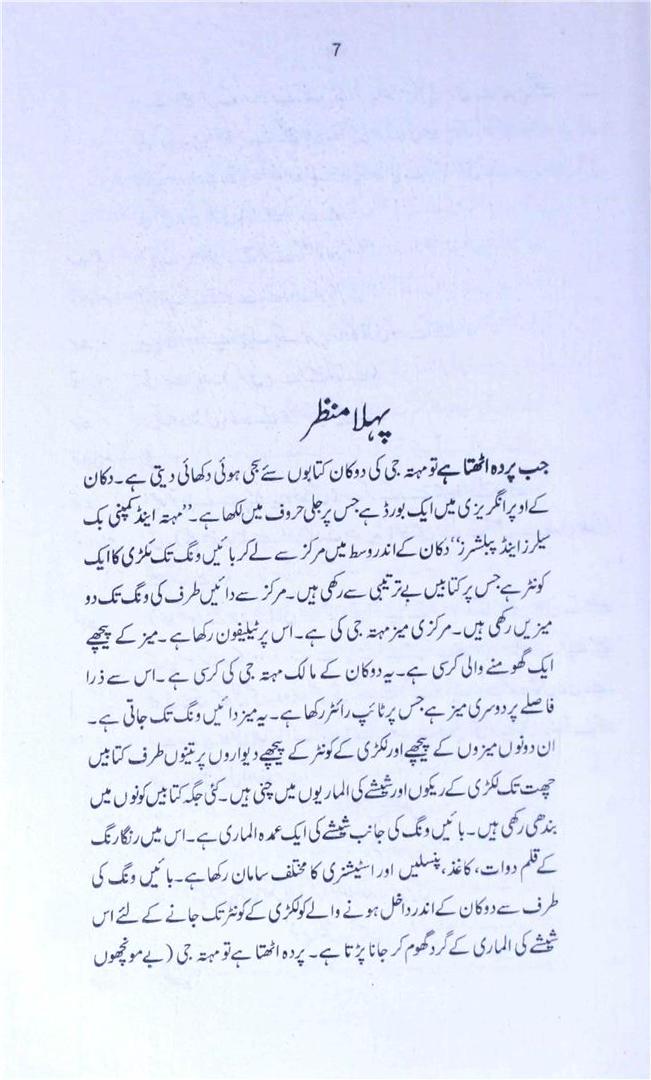 7
پہلا منظر
جب پردہ اٹھتا ہے تو مہتہ جی کی دوکان کتابوں سے سجی ہوئی دکھائی دیتی ہے۔ دکان
کے اوپر انگریزی میں ایک بورڈ ہے جس پر جلی حروف میں لکھا ہے۔ ”مہتہ اینڈ کمپنی بک
سیلرز اینڈ پبلشرز“ دکان کے اندر وسط میں مرکز سے لے کر بائیں ونگ تک لکڑی کا ایک
کونٹر ہے جس پر کتابیں بے ترتیبی سے رکھی ہیں۔ مرکز سے دائیں طرف کی ونگ تک دو
میزیں رکھی ہیں۔ مرکزی میز مہتہ جی کی ہے۔ اس پر ٹیلیفون رکھا ہے۔ میز کے پیچھے
ایک گھومنے والی کرسی ہے۔ یہ دوکان کے مالک مہتہ جی کی کرسی ہے۔ اس سے ذرا
فاصلے پر دوسری میز ہے جس پر ٹائپ رائٹر رکھا ہے۔ یہ میز دائیں ونگ تک جاتی ہے۔
ان دونوں میزوں کے پیچھے اور لکڑی کے کونٹر کے پیچھے دیواروں پر تینوں طرف کتابیں
چھت تک لکڑی کے ریکوں اور شیشے کی الماریوں میں چنی ہیں۔ کئی جگہ کتابیں کونوں میں
بندھی رکھی ہیں۔ بائیں ونگ کی جانب شیشے کی ایک عمدہ الماری ہے۔ اس میں رنگا رنگ
کے قلم دوات، کاغذ، پنسلیں اور اسٹیشنری کا مختلف سامان رکھا ہے۔ بائیں ونگ کی
طرف سے دوکان کے اندر داخل ہونے والے کو لکڑی کے کونٹر تک جانے کے لئے اس
شیشے کی الماری کے گرد گھوم کر جانا پڑتا ہے۔ پردہ اٹھتا ہے تو مہتہ جی (بے مونچھوں